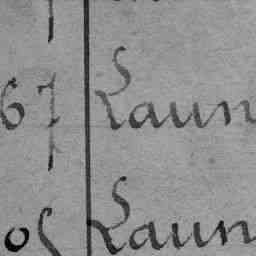 67 Laun
Laun